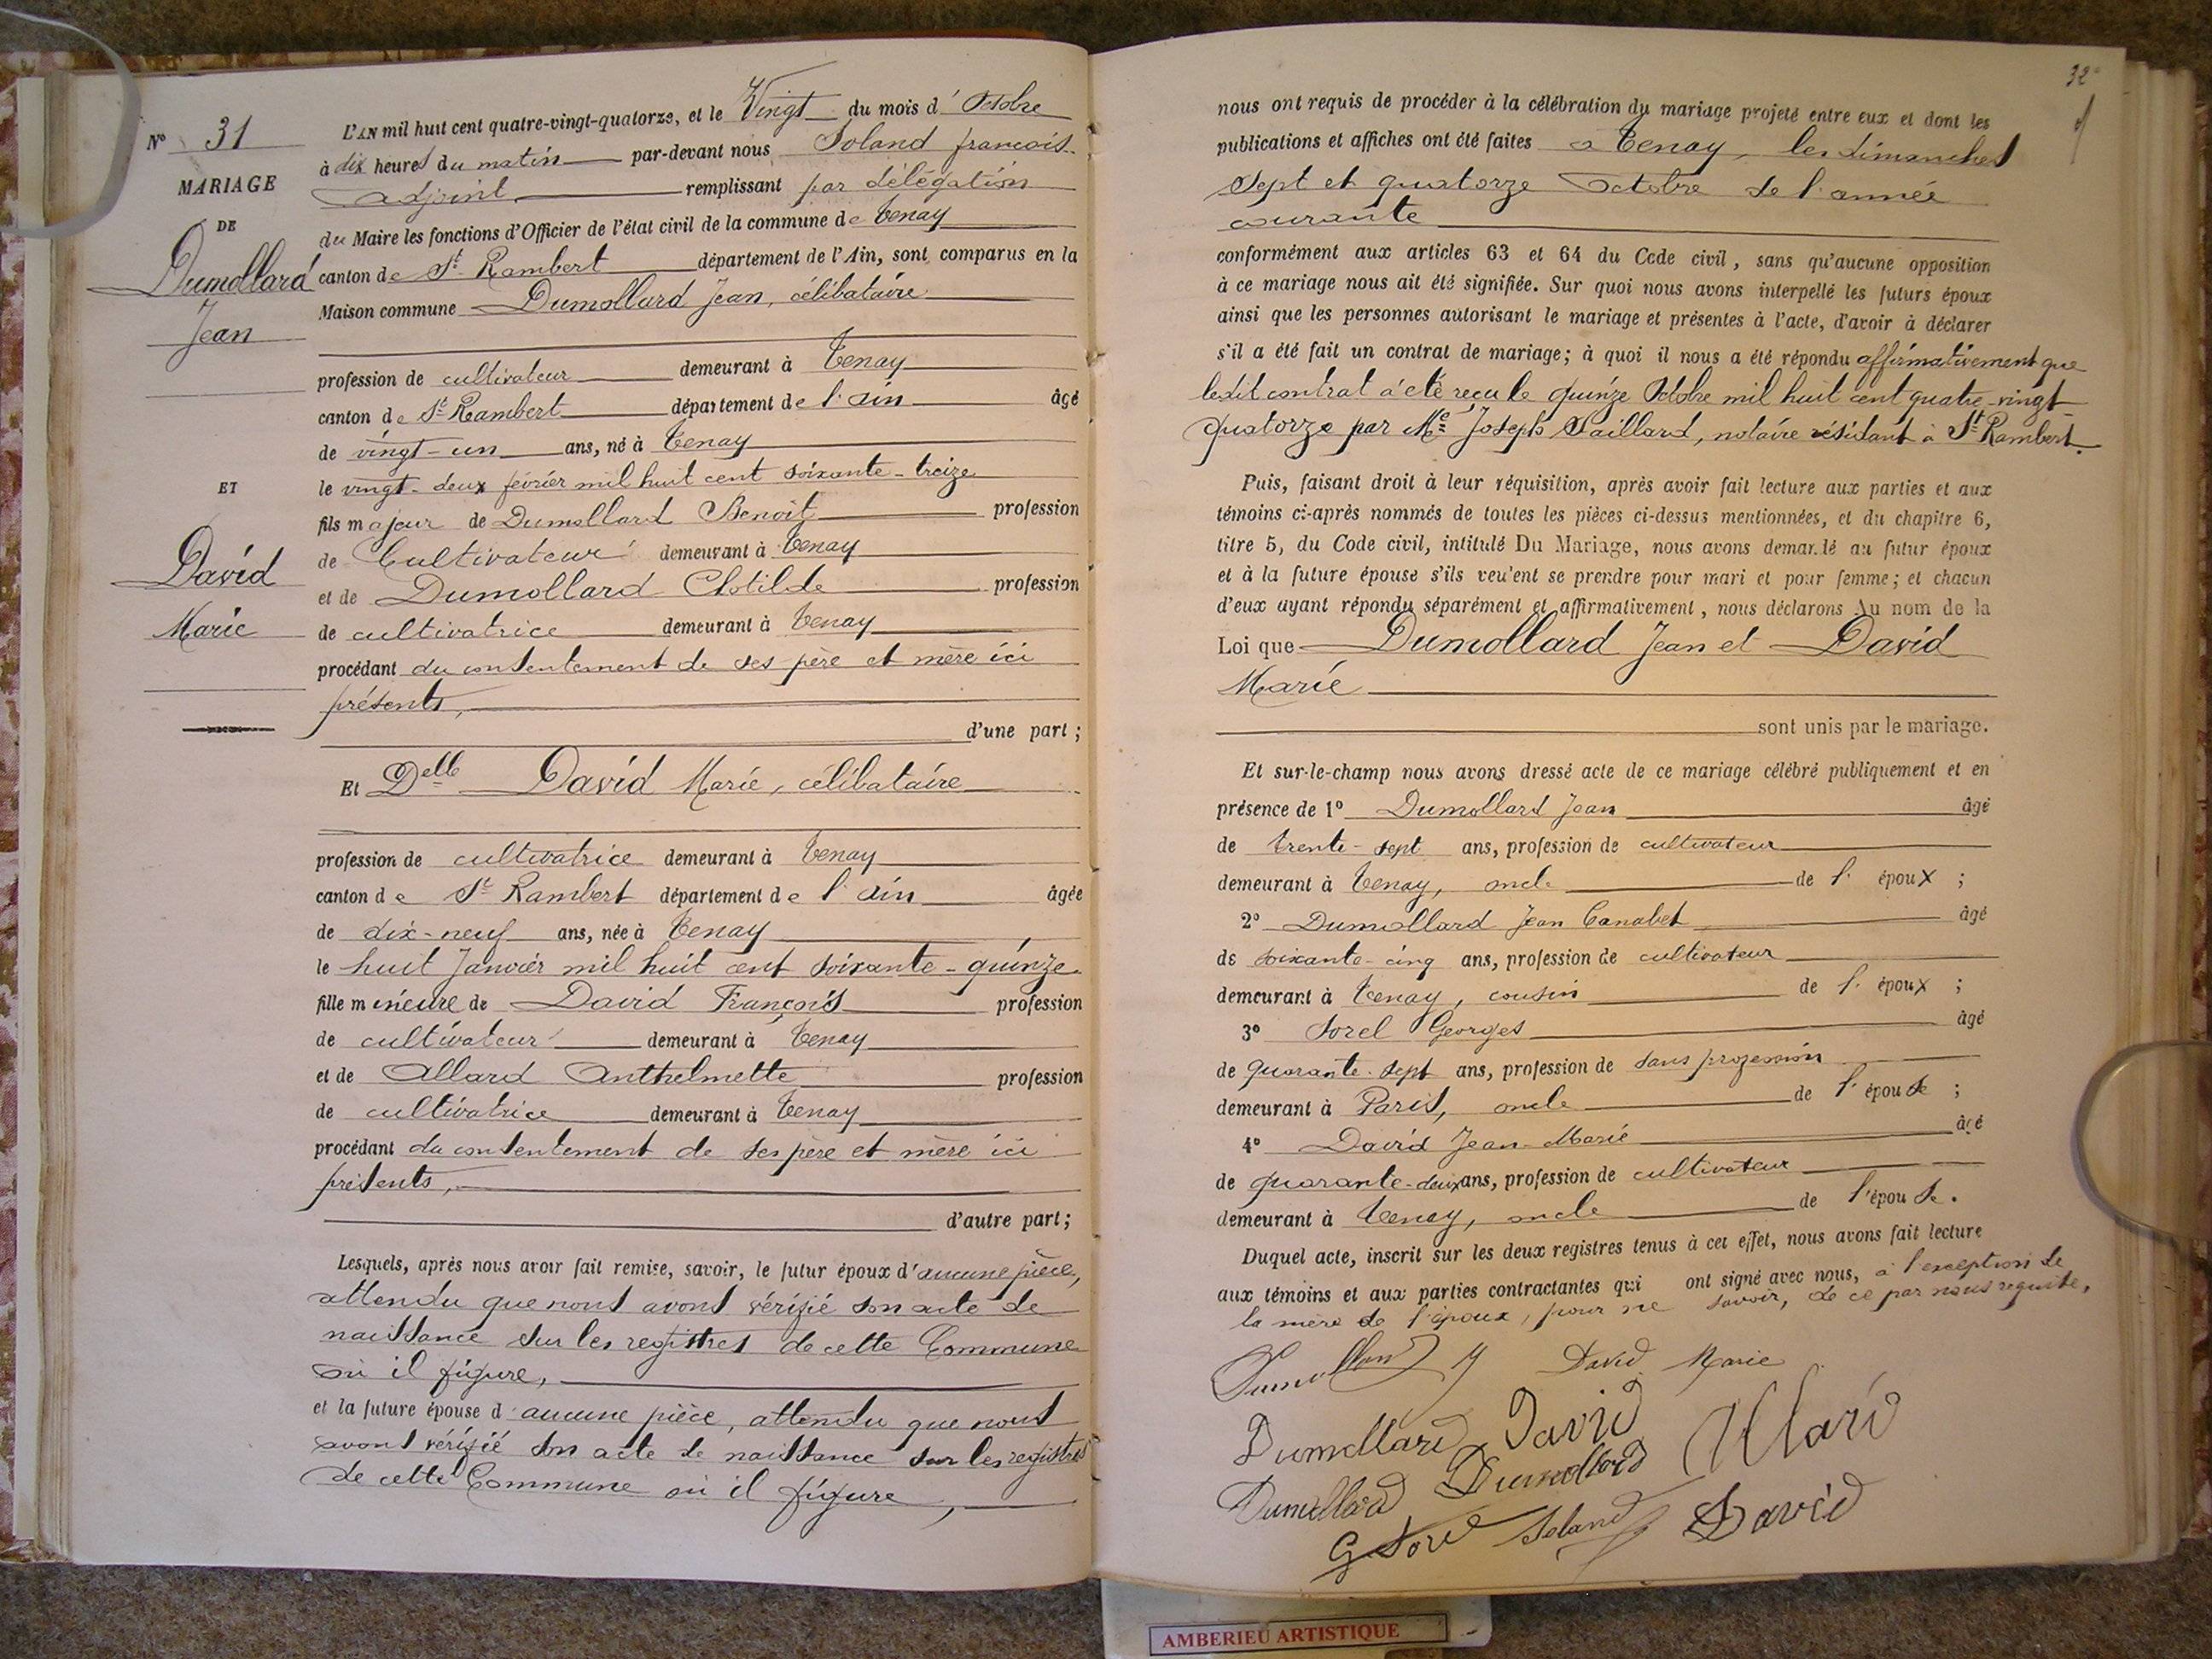 N° 31
MARIAGE
DE
Dumollard
Jean
ET
David
Marie
L'AN mil huit cent quatre-vingt-quatorze, et le Vingt du mois d'Octobre
à dix heures du matin par-devant nous Soland françois
adjoint remplissant par délégation
du Maire les fonctions d'Officier de l'état civil de la commune de Tenay
canton de St Rambert département de l'Ain, sont comparus en la
Maison commune Dumollard Jean, célibataire
profession de cultivateur demeurant à Tenay
canton de St Rambert département de l'Ain âgé
de vingt-un ans, né à Tenay
le vingt-deux février mil huit cent soixante-treize
fils majeur de Dumollard Benoit profession
de Cultivateur demeurant à Tenay
et de Dumollard Clotilde profession
de cultivatrice demeurant à Tenay
procédant du consentement de ses père et mère ici
présents,
d'une part ;
Et Delle David Marie, célibataire
profession de cultivatrice demeurant à Tenay
canton de St Rambert département de l'Ain âgée
de dix-neuf ans, née à Tenay
le huit Janvier mil huit cent soixante-quinze
fille mineure de David François profession
de cultivateur demeurant à Tenay
et de Allard Anthelmette profession
de cultivatrice demeurant à Tenay
procédant du consentement de ses père et mère ici
présents,
d'autre part ;
Lesquels, après nous avoir fait remise, savoir, le futur époux d'aucune pièce,
attendu que nous avons vérifié son acte de
naissance sur les registres de cette Commune
où il figure,
et la future épouse d'aucune pièce, attendu que nous
avons vérifié son acte de naissance sur les registres
de cette Commune où il figure,
32
nous ont requis de procéder à la célébration du mariage projeté entre eux et dont les
publications et affiches ont été faites à Tenay, les dimanches
sept et quatorze octobre de l'année
courante
conformément aux articles 63 et 64 du Code civil, sans qu'aucune opposition
à ce mariage nous ait été signifiée. Sur quoi nous avons interpellé les futurs époux
ainsi que les personnes autorisant le mariage et présentes à l'acte, d'avoir à déclarer
s'il a été fait un contrat de mariage ; à quoi il nous a été répondu affirmativement que
ledit contrat a été reçu le quinze Octobre mil huit cent quatre-vingt
quatorze par Me Joseph Saillard, notaire résidant à St Rambert.
Puis, faisant droit à leur réquisition, après avoir fait lecture aux parties et aux
témoins ci-après nommés de toutes les pièces ci-dessus mentionnées, et du chapitre 6,
titre 5, du Code civil, intitulé Du Mariage, nous avons demandé au futur époux
et à la future épouse s'ils veulent se prendre pour mari et pour femme ; et chacun
d'eux ayant répondu séparément et affirmativement, nous déclarons Au nom de la
Loi que Dumollard Jean et David
Marie
sont unis par le mariage.
Et sur-le-champ nous avons dressé acte de ce mariage célébré publiquement et en
présence de 1° Dumollard Jean âgé
de trente-sept ans, profession de cultivateur
demeurant à Tenay, oncle de l'époux ;
2° Dumollard Jean Canabet âgé
de soixante-cinq ans, profession de cultivateur
demeurant à Tenay, cousin de l'époux ;
3° Sorel Georges âgé
de quarante-sept ans, profession de sans profession
demeurant à Paris, oncle de l'épouse ;
4° David Jean-Marie âgé
de quarante-deux ans, profession de cultivateur
demeurant à Tenay, oncle de l'épouse.
Duquel acte, inscrit sur les deux registres tenus à cet effet, nous avons fait lecture
aux témoins et aux parties contractantes qui ont signé avec nous, à l'exception de
la mère de l'époux, pour ne savoir, de ce par nous requise,
Dumollard J David Marie
Dumollard David Allard
Dumollard Dumollard
G Sorel Soland David
AMBERIEU ARTISTIQUE